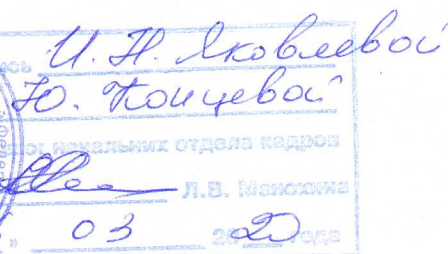 И. Н. Яковлевой
Ю. Концевой
начальник отдела кадров
Л.В.
03 2020 года